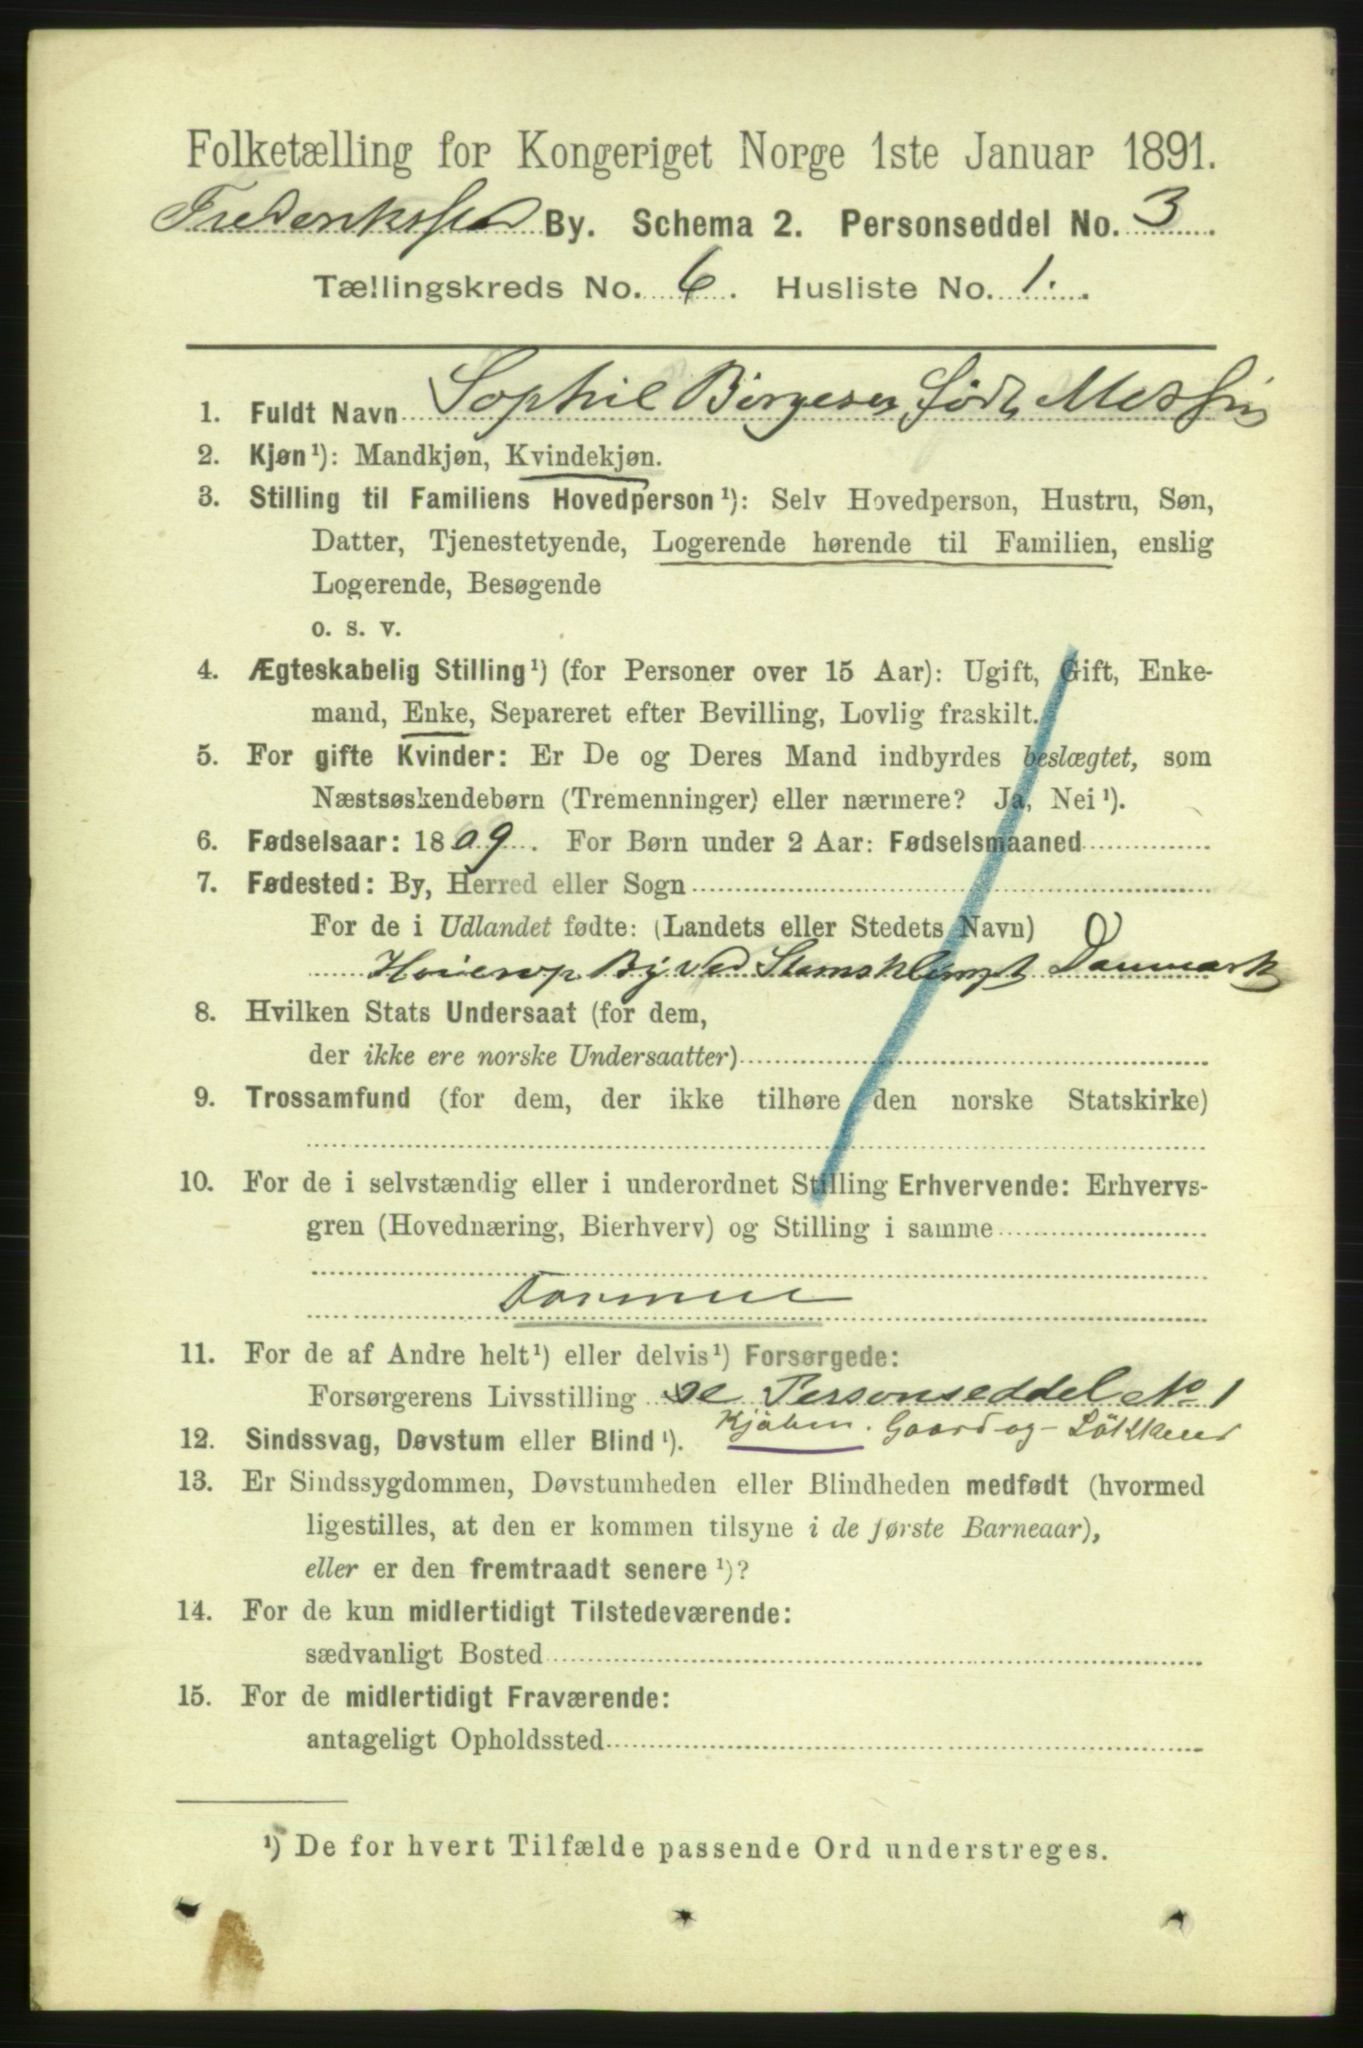 Folketælling for Kongeriget Norge 1ste Januar 1891.
Frederiksstad By. Schema 2. Personseddel No. 3.
Tællingskreds No. 6. Husliste No. 1.
1. Fuldt Navn Sophie Børgesen, født
2. Kjøn¹): Mandkjøn, Kvindekjøn.
3. Stilling til Familiens Hovedperson¹): Selv Hovedperson, Hustru, Søn,
Datter, Tjenestetyende, Logerende hørende til Familien, enslig
Logerende, Besøgende
o. s. v.
4. Ægteskabelig Stilling¹) (for Personer over 15 Aar): Ugift, Gift, Enke-
mand, Enke, Separeret efter Bevilling, Lovlig fraskilt.
5. For gifte Kvinder: Er De og Deres Mand indbyrdes beslægtet, som
Næstsøskendebørn (Tremenninger) eller nærmere? Ja, Nei¹).
6. Fødselsaar: 1809. For Børn under 2 Aar: Fødselsmaaned
7. Fødested: By, Herred eller Sogn
For de i Udlandet fødte: (Landets eller Stedets Navn)
By ved Danmark
8. Hvilken Stats Undersaat (for dem,
der ikke ere norske Undersaatter)
9. Trossamfund (for dem, der ikke tilhøre den norske Statskirke)
10. For de i selvstændig eller i underordnet Stilling Erhvervende: Erhvervs-
gren (Hovednæring, Bierhverv) og Stilling i samme
Formue
11. For de af Andre helt¹) eller delvis¹) Forsørgede:
Forsørgerens Livsstilling se Personseddel No 1
Kjøbm. Gaard og
12. Sindssvag, Døvstum eller Blind¹).
13. Er Sindssygdommen, Døvstumheden eller Blindheden medfødt (hvormed
ligestilles, at den er kommen tilsyne i de første Barneaar),
eller er den fremtraadt senere¹)?
14. For de kun midlertidigt Tilstedeværende:
sædvanligt Bosted
15. For de midlertidigt Fraværende:
antageligt Opholdssted
¹) De for hvert Tilfælde passende Ord understreges.